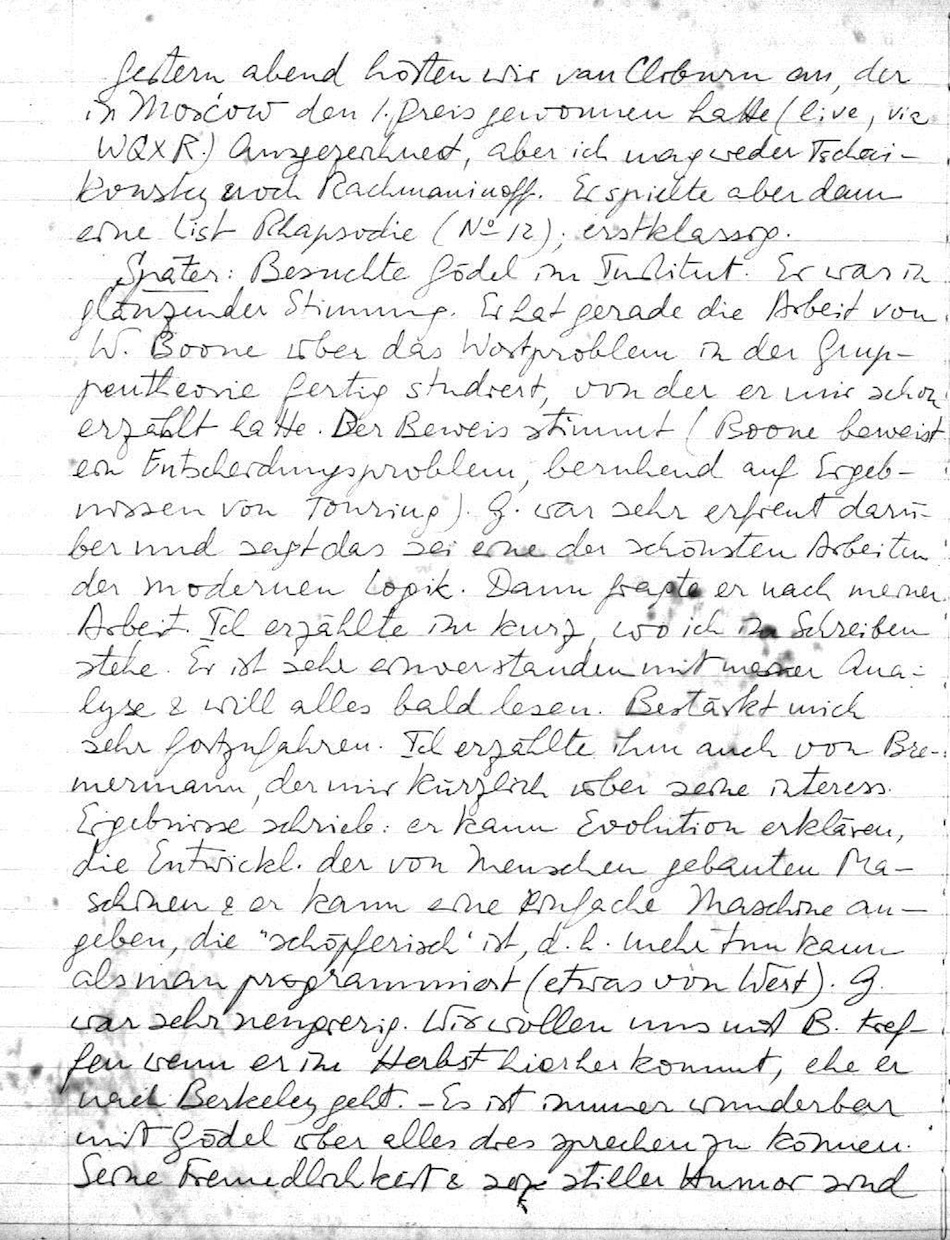 Gestern abend hörten wir van Cliburn an, der
in Moscow den 1. Preis gewonnen hatte (live, via
WQXR.) Ausgezeichnet, aber ich mag weder Tschai-
kowsky noch Rachmaninoff. Er spielte aber dann
eine List Rhapsodie (No 12), erstklassig.
Später: Besuchte Gödel im Institut. Er war in
glänzender Stimmung. Er hat gerade die Arbeit von
W. Boone über das Wortproblem in der Grup-
pentheorie fertig studiert, von der er mir schon
erzählt hatte. Der Beweis stimmt (Boone beweist
ein Entscheidungsproblem, beruhend auf Ergeb-
nissen von Touring). G. war sehr erfreut darü-
ber und sagt das sei eine der schönsten Arbeiten
der modernen Logik. Dann fragte er nach meiner
Arbeit. Ich erzählte im kurz, wo ich im Schreiben
stehe. Er ist sehr einverstanden mit meiner Ana-
lyse & will alles bald lesen. Bestärkt mich
sehr fortzufahren. Ich erzählte ihm auch von Bre-
mermann, der mir kürzlich über seine interess.
Ergebnisse schrieb: er kann Evolution erklären,
die Entwickl. der von Menschen gebauten Ma-
schinen & er kann eine einfache Maschine an-
geben, die "schöpferisch" ist, d.h. mehr tun kann
als man programmiert (etwas von Wert). G.
war sehr neugierig. Wir wollen uns mit B. tref-
fen wenn er im Herbst hierher kommt, ehe er
nach Berkeley geht. – Es ist immer wunderbar
mit Gödel über alles dies sprechen zu können.
Seine Freundlichkeit & sein stiller Humor sind